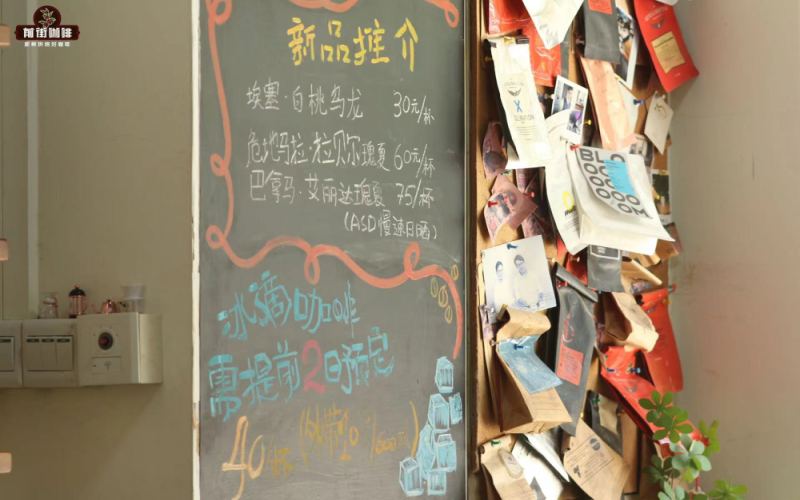 前街咖啡
新品推介
埃塞·白桃乌龙 30元/杯
危地马拉·拉贝尔瑰夏 60元/杯
巴拿马·艾丽达瑰夏 75/杯
(ASD慢速日晒)
冰滴咖啡
需提前2日预定
40/杯
BLO
OOO
OOO
OOM